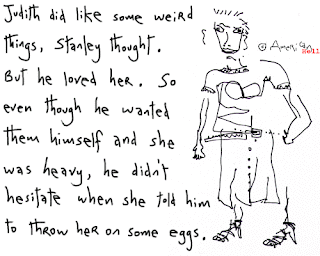 Judith did like some weird
things, Stanley thought.
But he loved her. So
even though he wanted
them himself and she
was heavy, he didn't
hesitate when she told him
to throw her on some eggs.